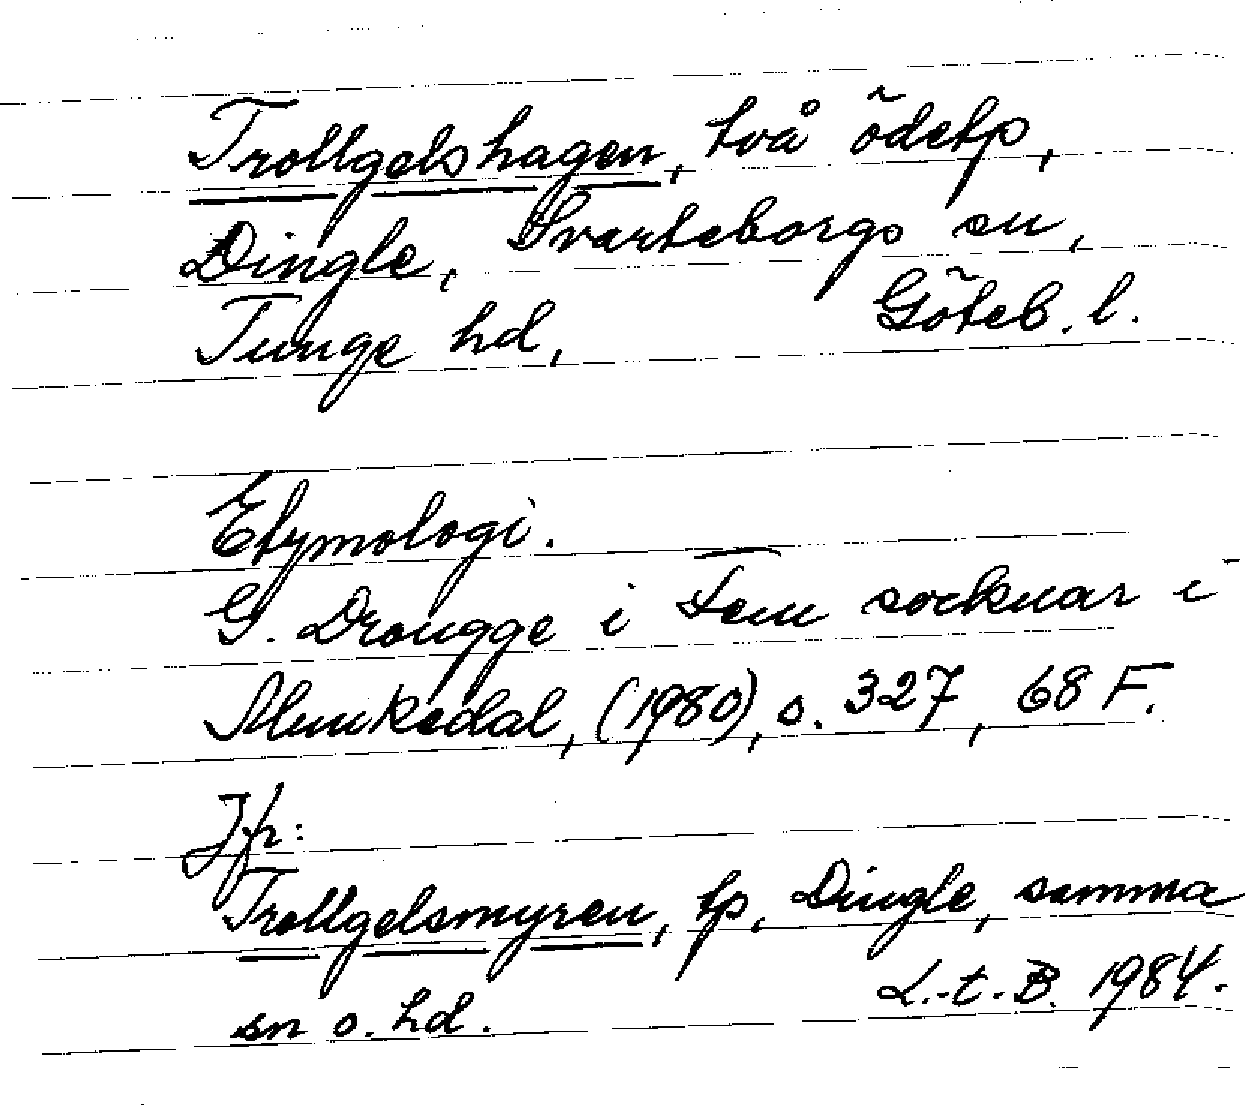 Trollgelshagen, två ödetp,
Dingle, Svarteborgs sn,
Tunge hd, Göteb. l.
Etymologi.
G. Drougge i Fem socknar i
Munkedal, (1980), s. 327, 68 F.
Jfr:
Trollgelsmyren, tp, Dingle, samma
sn o. hd. L.-t. B. 1984.